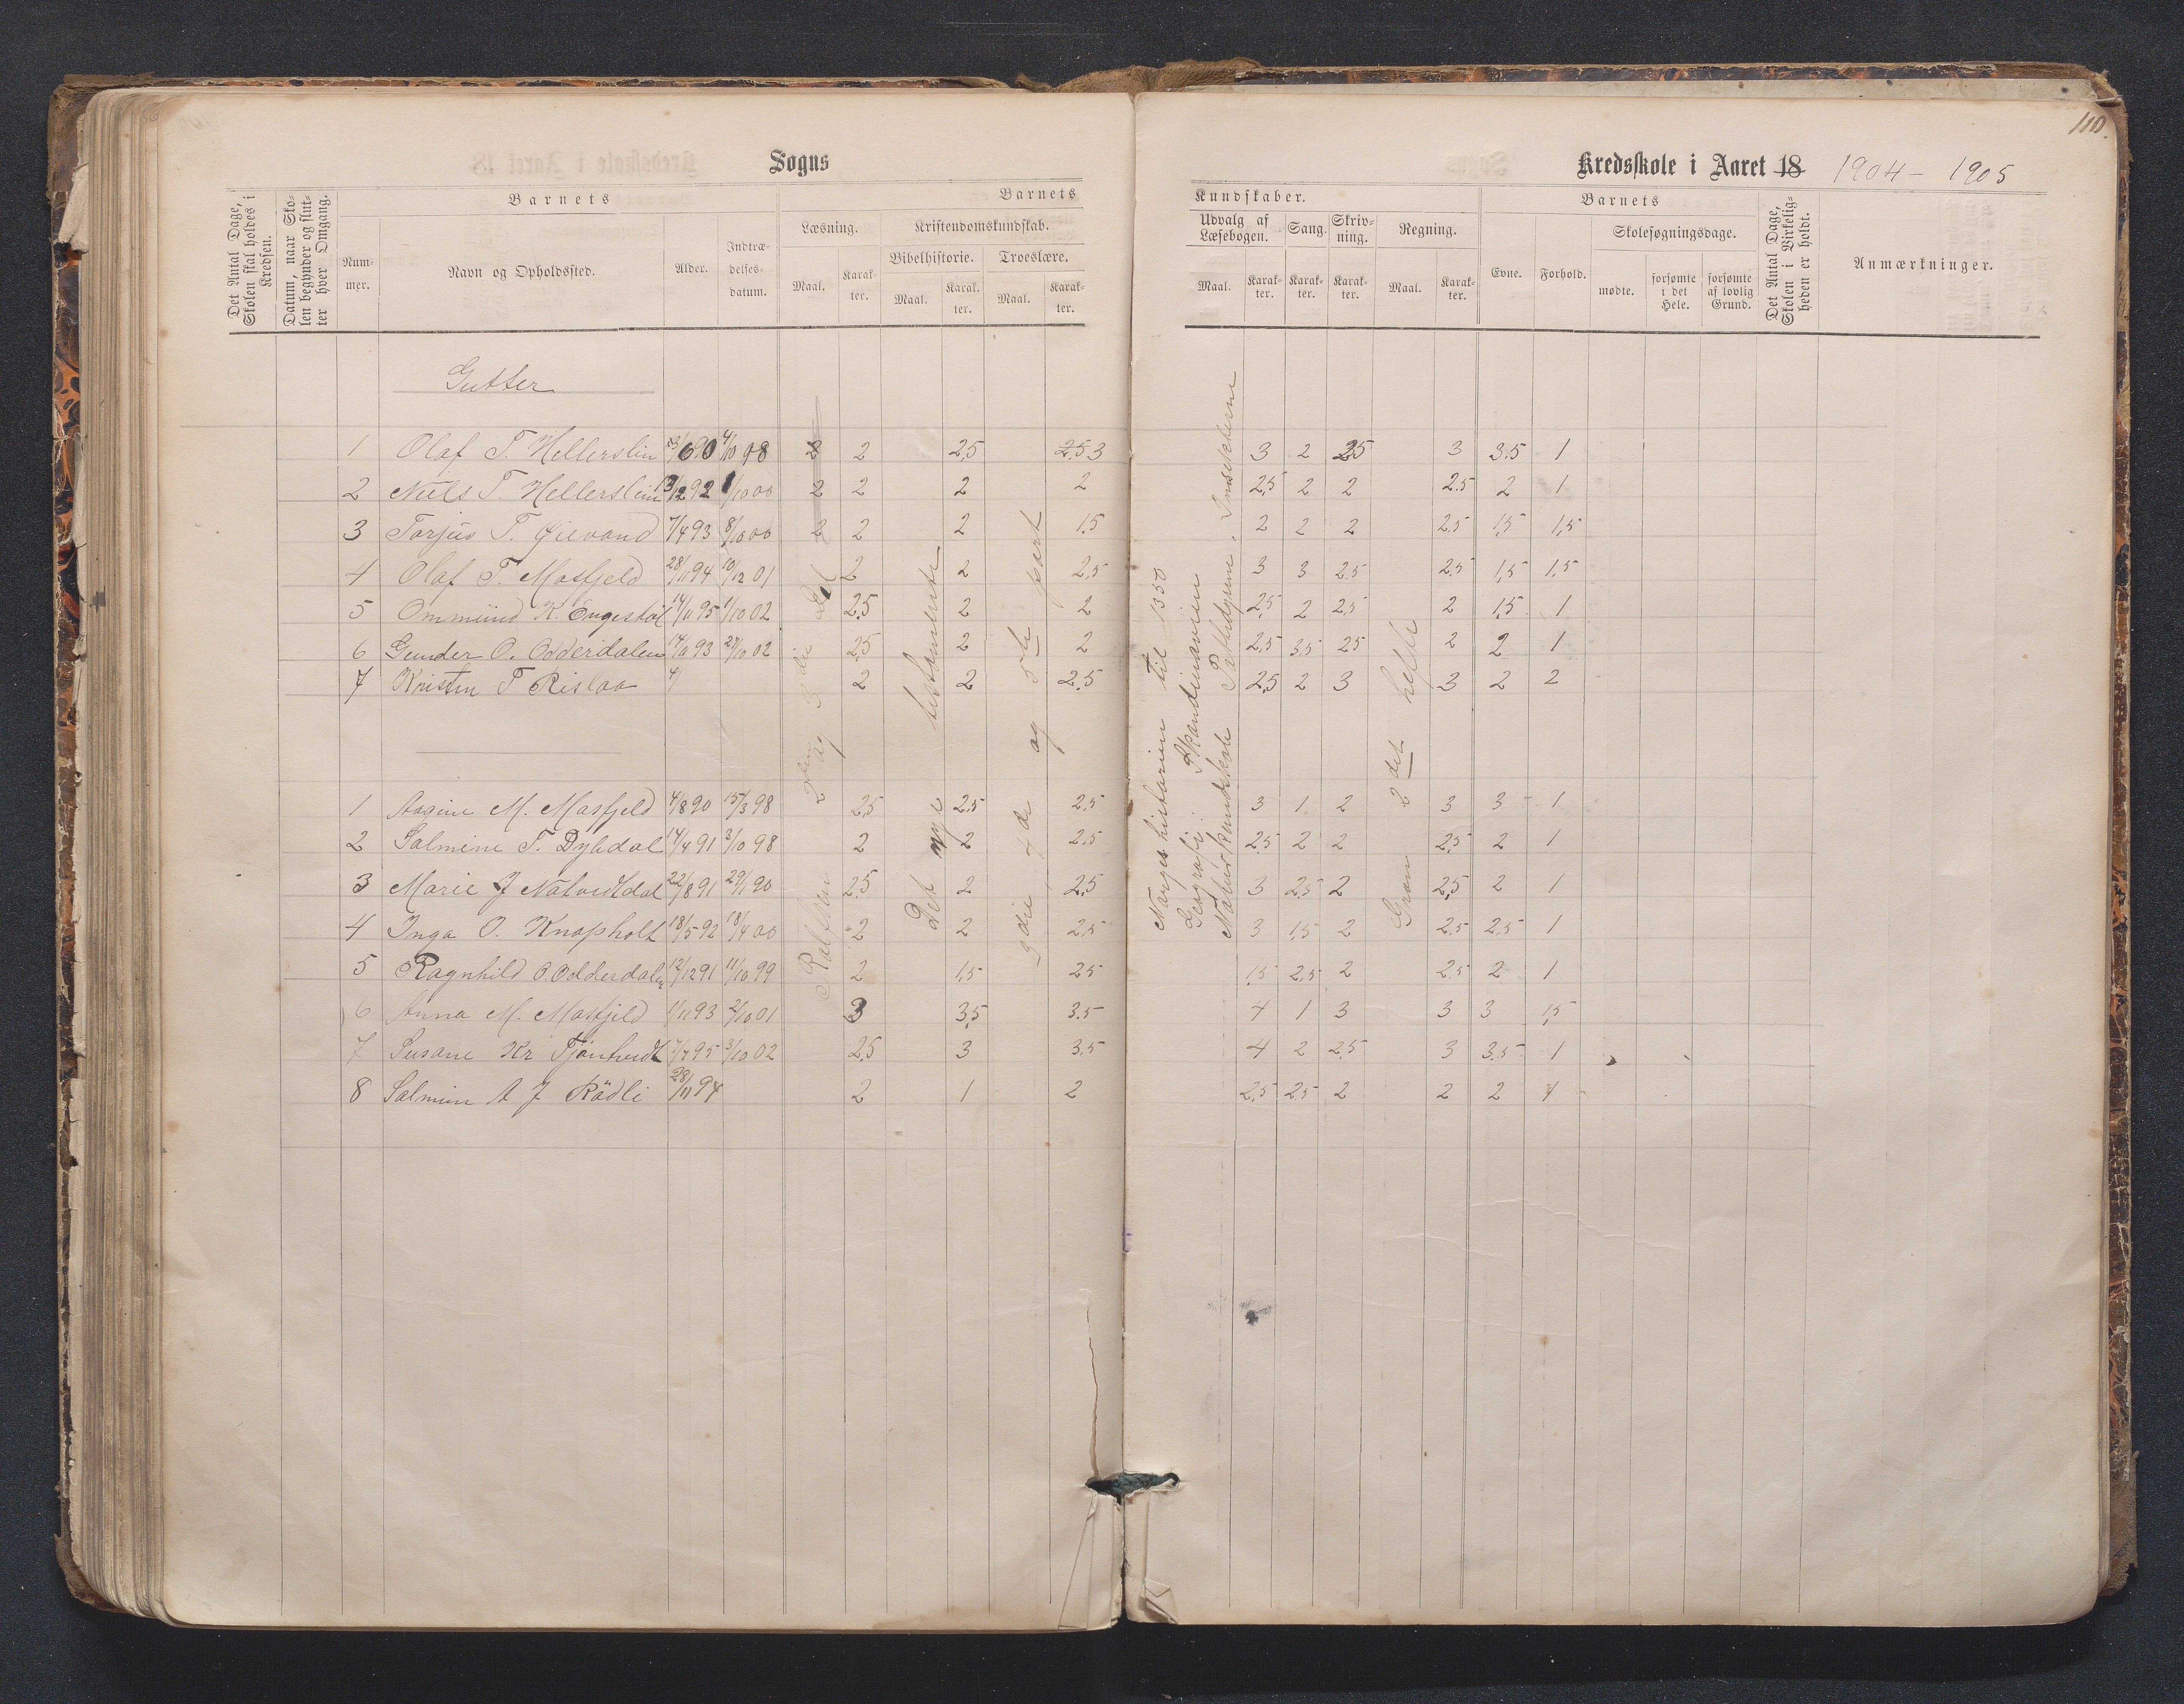 110.
Sogns
Kredsskole i Aaret 18 1904 - 1905
Det Antal Dage, Skolen skal holdes i Kredsen.
Datum, naar Skolen begynder og slutter hver Omgang.
Barnets
Nummer.
Navn og Opholdssted.
Alder.
Indtrædelsesdatum.
Barnets
Læsning.
Maal.
Karakter.
Kristendomskundskab.
Bibelhistorie.
Maal.
Karakter.
Troeslære.
Maal.
Karakter.
Kundskaber.
Udvalg af Læsebogen.
Maal.
Karakter.
Sang.
Karakter.
Skrivning.
Karakter.
Regning.
Maal.
Karakter.
Barnets
Evne.
Forhold.
Skolesøgningsdage.
mødte.
forsømte i det Hele.
forsømte af lovlig Grund.
Det Antal Dage, Skolen i Virkeligheden er holdt.
Anmærkninger.
Gutter
1 Olaf T. Hellerslin 4/10 98 2 2,5 2.5 3 3 2 25 3 3.5 1
2 Niels T. Hellerslin 1/10 00 2 2 2 2 2,5 2 2 2.5 2 1
3 Torjus T. 7/4 93 8/10 00 2 2 2 1.5 2 2 2 2.5 1,5 1,5
4 Olaf T. Masfjeld 28/11 94 10/12 01 2 2 2,5 3 3 2.5 2.5 1,5 1,5
5 Ommund K. 14/11 95 1/10 02 2,5 2 2 2,5 2 2,5 2 1,5 1
6 Gunder O. Odderdalen 93 02 2,5 2 2 2,5 3,5 25 2 2 1
7 Kristen T Rislaa 4/ 2 2 2.5 2,5 2 3 3 2 2
1 Aagine M. Masfjeld 4/8 90 15/3 98 2,5 2.5 2,5 3 1 2 3 3 1
2 Salmine T. Dybdal 14/4 91 3/10 98 2 2 2.5 2,5 2 2 2,5 2 1
3 Marie J 22/8 91 29/1 90 2.5 2 2,5 3 2,5 2 2,5 2 1
4 Inga O. Knapholt 18/5 92 18/4 00 2 2 2,5 3 1,5 2 2.5 2.5 1
5 Ragnhild O Odderdalen 12/12 91 11/10 99 2 1,5 25 1,5 2,5 2 2.5 2 1
6 Anna M. Masfjeld 1/11 93 2/10 01 3 3,5 3.5 4 1 3 3 3 1,5
7 Susane Kr 7/7 95 3/10 02 2,5 3 3.5 4 2 2,5 3 3.5 1
8 28/11 94 2 1 2 2,5 2,5 2 2 2
2den og 3die
Det nye testamente
3die, 4de og 5te part
Norges historien til 1350
Geografi: Skandinavien
Naturkundskab
2det hefte